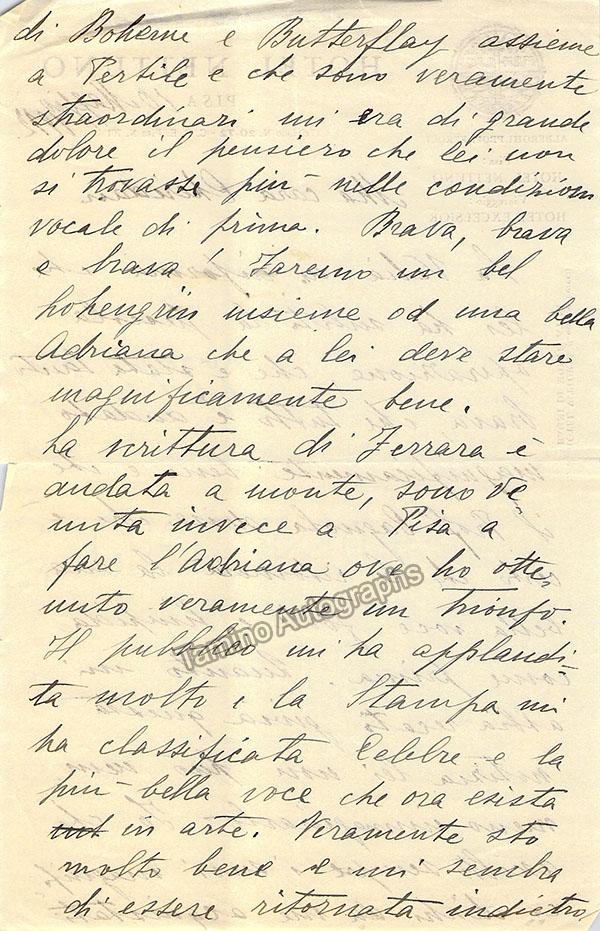 di Boheme e Butterflay assieme
a Pertile e che sono veramente
straordinari mi era di grande
dolore il pensiero che lei non
si trovasse più nelle condizioni
vocale di prima. Brava, brava
e brava! Faremo un bel
Lohengrin insieme od una bella
Adriana che a lei deve stare
magnificamente bene.
La scrittura di Ferrara è
andata a monte, sono ve
nuta invece a Pisa a
fare l'Adriana ove ho otte-
nuto veramente un trionfo.
Il pubblico mi ha applaudi-
ta molto e la Stampa mi
ha classificata Celebre e la
più bella voce che ora esista
in arte. Veramente sto
molto bene e mi sembra
di essere ritornata indietro
Tamino Autographs